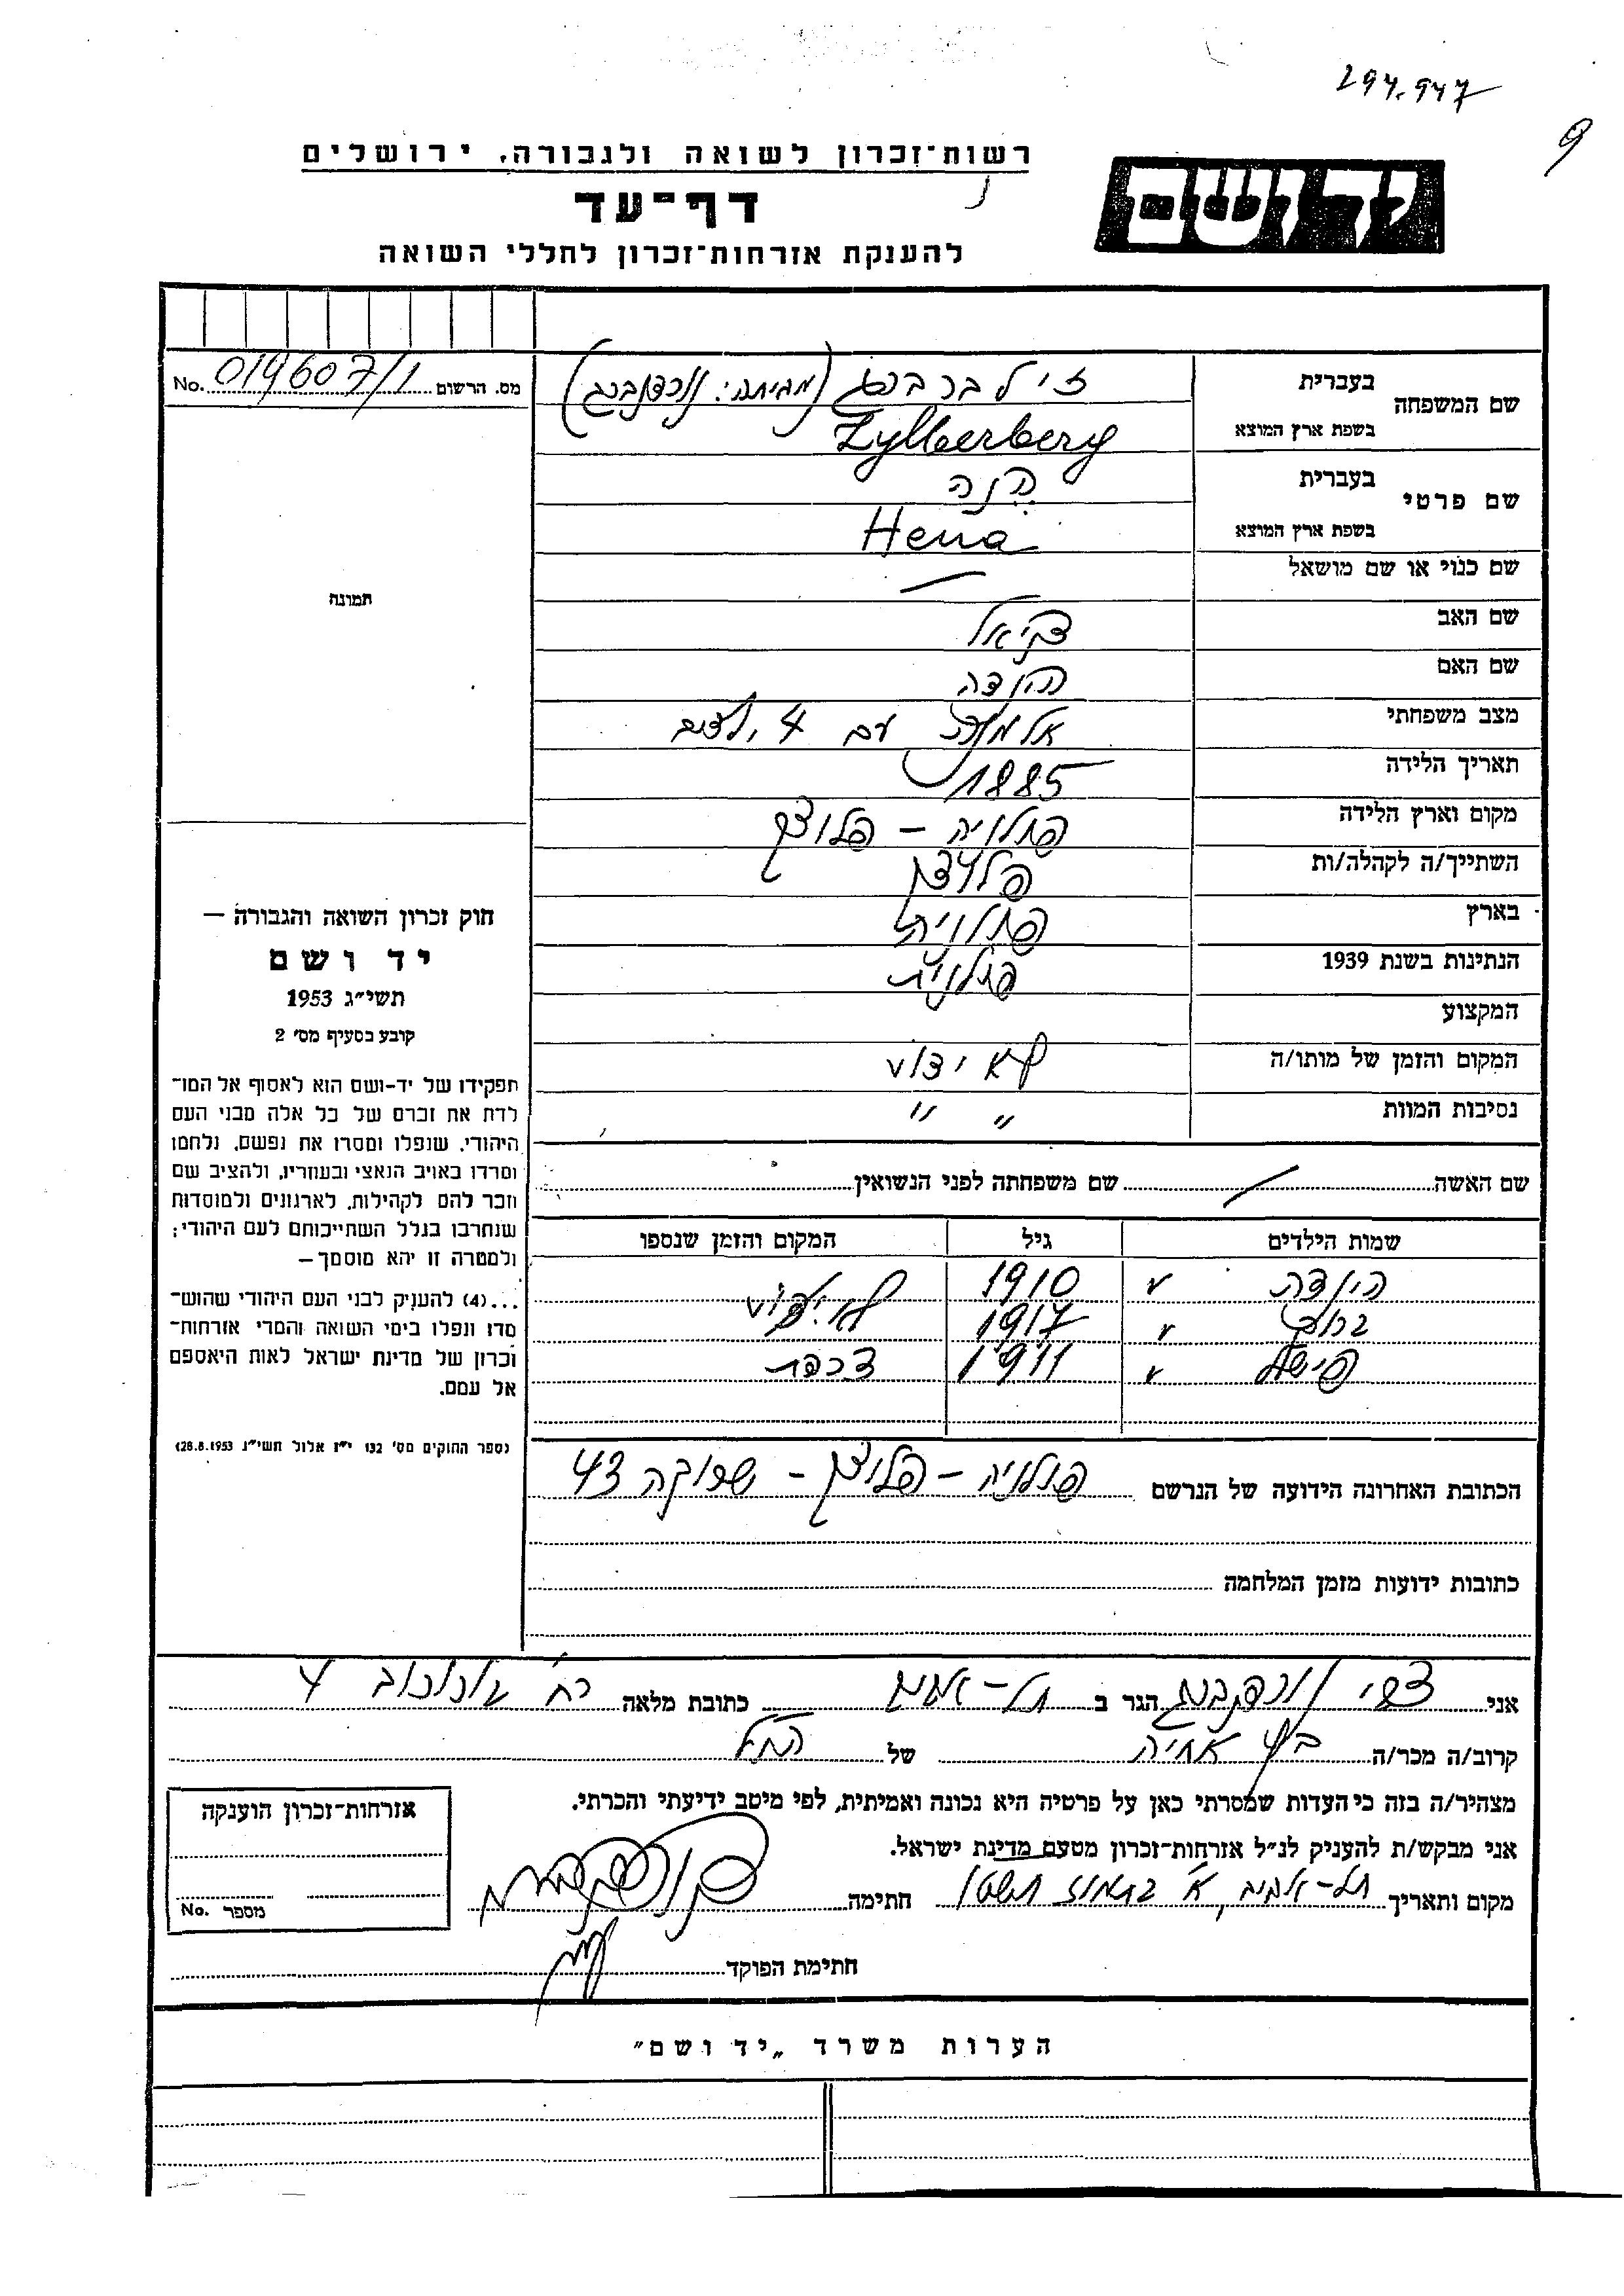 294.947
9
רשות־זכרון לשואה ולגבורה, ירושלים
יד ושם
דף־עד
להענקת אזרחות־זכרון לחללי השואה
מס. הרשום No. 019607/1
שם המשפחה
בעברית זילברברג
בשפת ארץ המוצא Zylberberg
שם פרטי
בעברית הנה
בשפת ארץ המוצא Hena
שם כנוי או שם מושאל —
שם האב
שם האם הינדה
מצב משפחתי אלמנה עם 4 ילדים
תאריך הלידה 1885
מקום וארץ הלידה פולניה – פלוצק
השתייך/ה לקהלה/ות פלוצק
בארץ פולניה
הנתינות בשנת 1939 פולנית
המקצוע
המקום והזמן של מותו/ה לא ידוע
נסיבות המוות " "
שם האשה / שם משפחתה לפני הנשואין
שמות הילדים גיל המקום והזמן שנספו
הינדה v 1910 לא ידוע
ברוך v 1917
פישל v 1911 צרפת
הכתובת האחרונה הידועה של הנרשם פולניה – פלוצק – שרוקה 43
כתובות ידועות מזמן המלחמה
תמונה
חוק זכרון השואה והגבורה —
יד ושם
תשי״ג 1953
קובע בסעיף מס׳ 2
תפקידו של יד־ושם הוא לאסוף אל המו־
לדת את זכרם של כל אלה מבני העם
היהודי, שנפלו ומסרו את נפשם, נלחמו
ומרדו באויב הנאצי ובעוזריו, ולהציב שם
וזכר להם לקהילות, לארגונים ולמוסדות
שנחרבו בגלל השתייכותם לעם היהודי;
ולמטרה זו יהא מוסמך —
...(4) להעניק לבני העם היהודי שהוש־
מדו ונפלו בימי השואה והמרי אזרחות־
זכרון של מדינת ישראל לאות היאספם
אל עמם.
(ספר החוקים מס׳ 132 י״ז אלול תשי״ג 28.8.1953)
אני צבי הגר ב תל־אביב כתובת מלאה רח׳ 4
קרוב/ה מכר/ה בן אחיה של הנ״ל
מצהיר/ה בזה כי העדות שמסרתי כאן על פרטיה היא נכונה ואמיתית, לפי מיטב ידיעתי והכרתי.
אני מבקש/ת להעניק לנ״ל אזרחות־זכרון מטעם מדינת ישראל.
מקום ותאריך תל־אביב, א׳ בתמוז תשט״ו חתימה
חתימת הפוקד
אזרחות־זכרון הוענקה
מספר No.
הערות משרד „יד ושם״